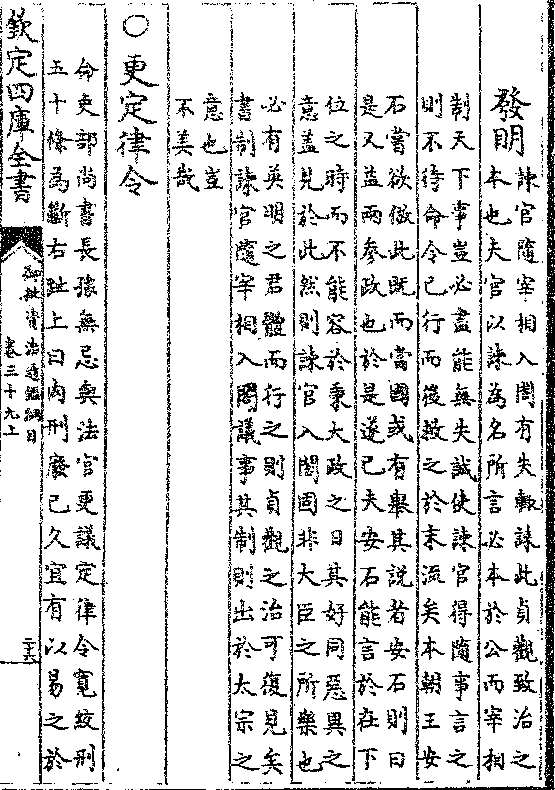 發明諫官隨宰相入閤有失輙諫此貞觀致治之
本也夫官以諫為名所言必本於公而宰相
制天下事豈必盡能無失誠使諫官得隨事言之
則不待命令已行而後救之於末流矣本朝王安
石嘗欲倣此既而當國或有舉其說者安石則曰
是又益兩參政也於是遂已夫安石能言於在下
位之時而不能容於秉大政之日其好同惡異之
意蓋見於此然則諫官入閤固非大臣之所樂也
必有英明之君體而行之則貞觀之治可復見矣
書制諫官隨宰相入閤議事其制則出於太宗之
意也豈
不美哉
○更定律令
命吏部尚書長孫無忌與法官更議定律令寬絞刑
五十條為斷右趾上曰肉刑廢已久宜有以易之於
欽定四庫全書
御批資治通鑑綱目
卷三十九上
二十六